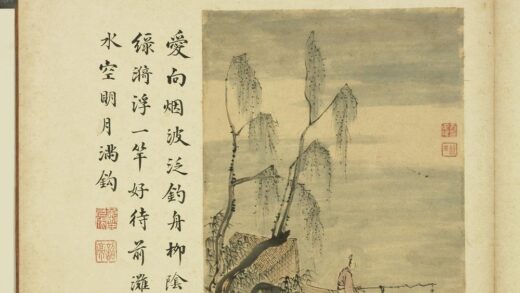 愛向烟波泛釣舟柳陰
綠浮一竿好待前灘
水空明月滿鈎